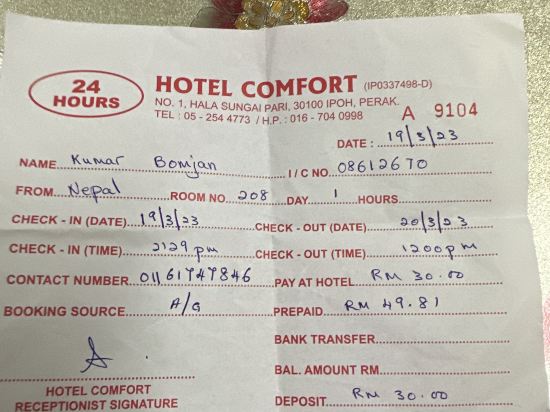 24 HOURS
HOTEL COMFORT (IP0337498-D)
NO. 1, HALA SUNGAI PARI, 30100 IPOH, PERAK.
TEL : 05 - 254 4773 / H.P. : 016 - 704 0998
A 9104
DATE : 19/3/23
NAME Kumar Bomjan I / C NO. 08612670
FROM Nepal ROOM NO. 208 DAY 1 HOURS
CHECK - IN (DATE) 19/3/23 CHECK - OUT (DATE) 20/3/23
CHECK - IN (TIME) 2129 pm CHECK - OUT (TIME) 1200pm
CONTACT NUMBER 01161747846 PAY AT HOTEL RM 30.00
BOOKING SOURCE A/G PREPAID RM 49.81
BANK TRANSFER
BAL. AMOUNT RM
HOTEL COMFORT
RECEPTIONIST SIGNATURE
DEPOSIT RM 30.00